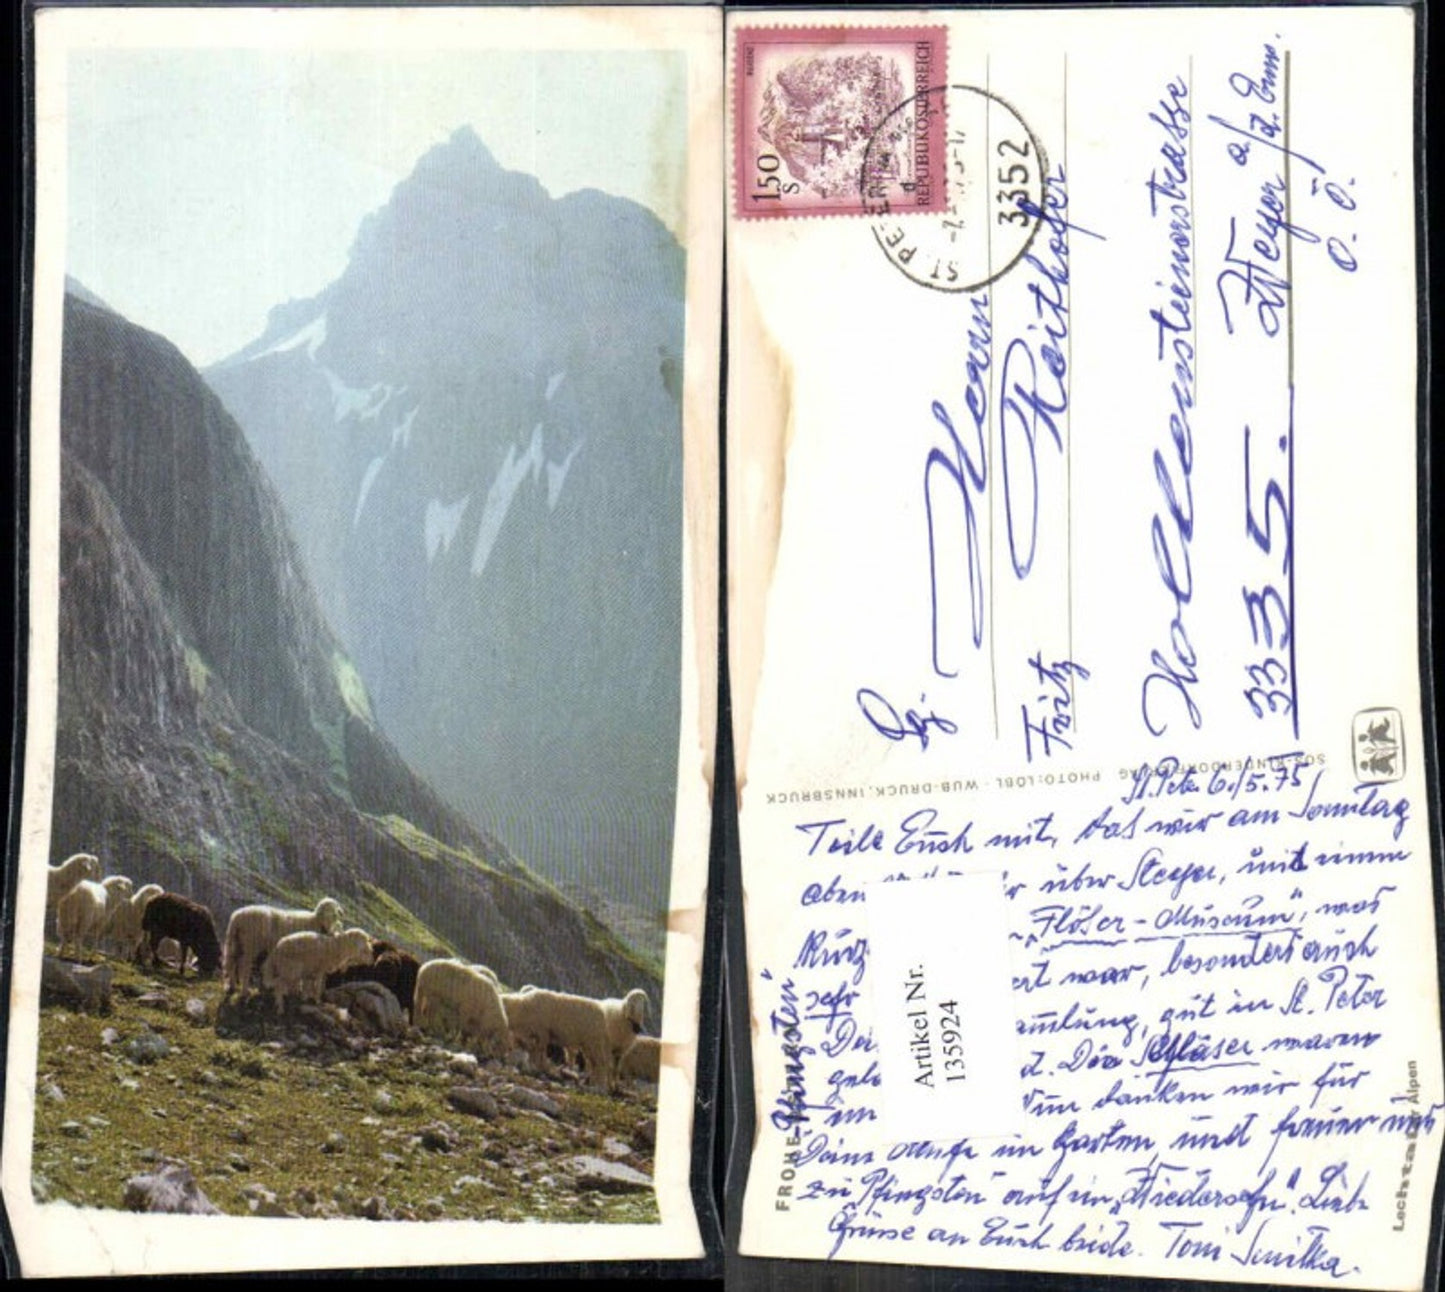 BLUDENZ
1.50
S
REPUBLIK ÖSTERREICH
ST. PETER
3352
Herrn
Fritz Reithofer
Hollensteinerstrasse
3335. Weyer a/d. Enns.
O. Ö.
SOS-KINDERDORFVERLAG PHOTO: LÖBL - WUB-DRUCK, INNSBRUCK
St. Peter 6./5.75
Teile Euch mit, das wir am Sonntag
aben über Steyer, und einen
Kurz "Flöser-Museum", was
sehr ert war, besonders auch
amlung, gut in St. Peter
gela t. Die Gläser waren
im danken wir für
Deine Mühe im Garten, und freuen uns
zu Pfingsten auf ein "Wiedersehn". Liebe
Grüsse an Euch beide. Toni Smitka.
FROHE Pfingsten
Artikel Nr.
135924
Lechtaler Alpen